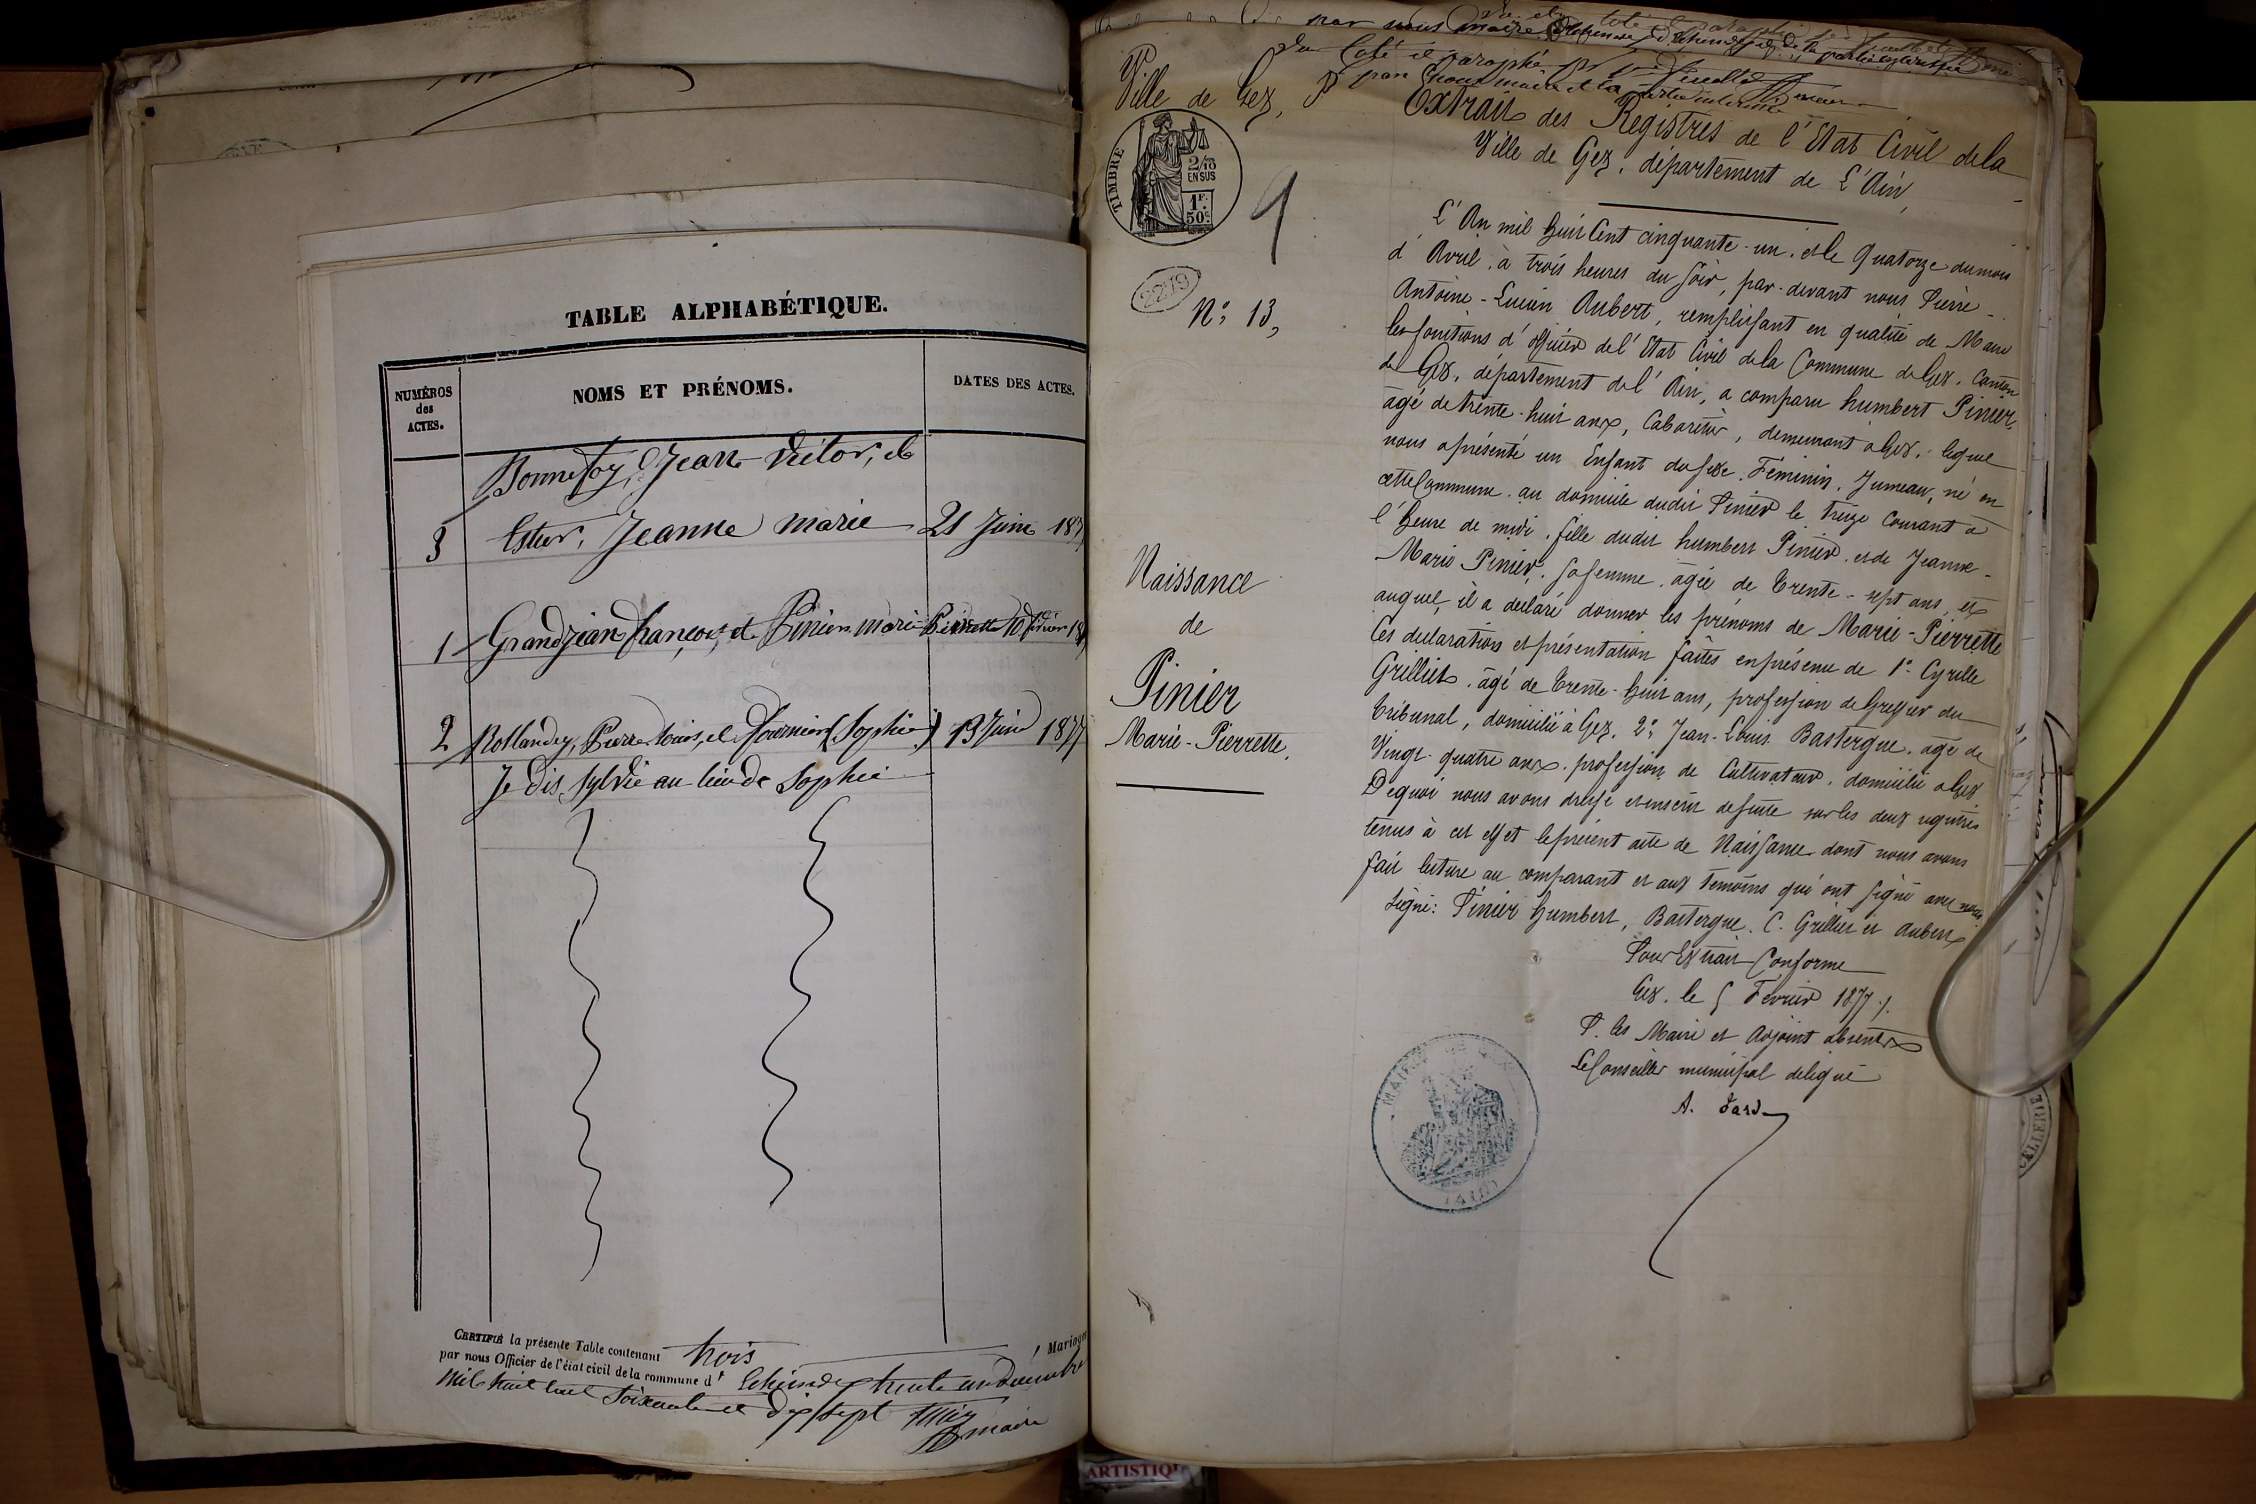 TABLE ALPHABÉTIQUE.
NUMÉROS
des
ACTES.
NOMS ET PRÉNOMS.
DATES DES ACTES.
Bonnefoy, Jean Victor, et
3 Jeanne marie 21 Juin 187
1 Grandjean françois, et Pinier marie Pierrette 10 février 18
2 Rollandez, Pierre Louis, et fournier (Sophie) 13 Juin 1877
Je dis Sylvie au lieu de Sophie
CERTIFIÉ la présente Table contenant trois , Mariages
par nous Officier de l'état civil de la commune d' trente un décembre
mil huit cent soixante et dix sept
maire
par nous maire
Ville de Gex,
Extrait des Registres de l'Etat Civil de la
Ville de Gex, département de L'Ain,
TIMBRE
2/10
EN SUS
1F.
50c
9
2279
N: 13,
Naissance
de
Pinier
Marie-Pierrette,
L'An mil huit Cent cinquante-un. et le Quatorze du mois
d'Avril. à trois heures du Soir, par-devant nous Pierre-
Antoine-Lucien Aubert, remplissant en qualité de Maire
les fonctions d'officier de l'Etat Civil de la Commune de Gex. Canton
de Gex, département de l'Ain, a comparu humbert Pinier,
âgé de trente-huit ans, Cabaretier, demeurant à Gex. lequel
nous a présenté un Enfant du sexe Féminin. Jumeau, né en
cette Commune. au domicile dudit Pinier le treize Courant à
l'heure de midi. fille dudit humbert Pinier. et de Jeanne-
Marie Pinier. sa femme. âgée de trente-sept ans, et
auquel, il a déclaré donner les prénoms de Marie-Pierrette
Ces déclaration et présentation faites en présence de 1° Cyrille
Grilliet. âgé de trente-huit ans, profession de Greffier du
tribunal, domicilié à Gex. 2° Jean-Louis Bastergue. âgé de
Vingt-quatre ans. profession de Cultivateur. domicilié à Gex
De quoi nous avons dressé et inscrit de suite sur les deux registres
tenus à cet effet le présent acte de Naissance dont nous avons
fait lecture au comparant et aux témoins qui ont signé avec nous
Signé: Pinier humbert, Bastergue. C. Grilliet et Aubert
Pour Extrait Conforme
Gex. le 5 Février 1877.
P. les Maire et Adjoint absents
Le Conseiller municipal délégué
A.
MAIRIE DE GEX
(AIN)
ARTISTIQ